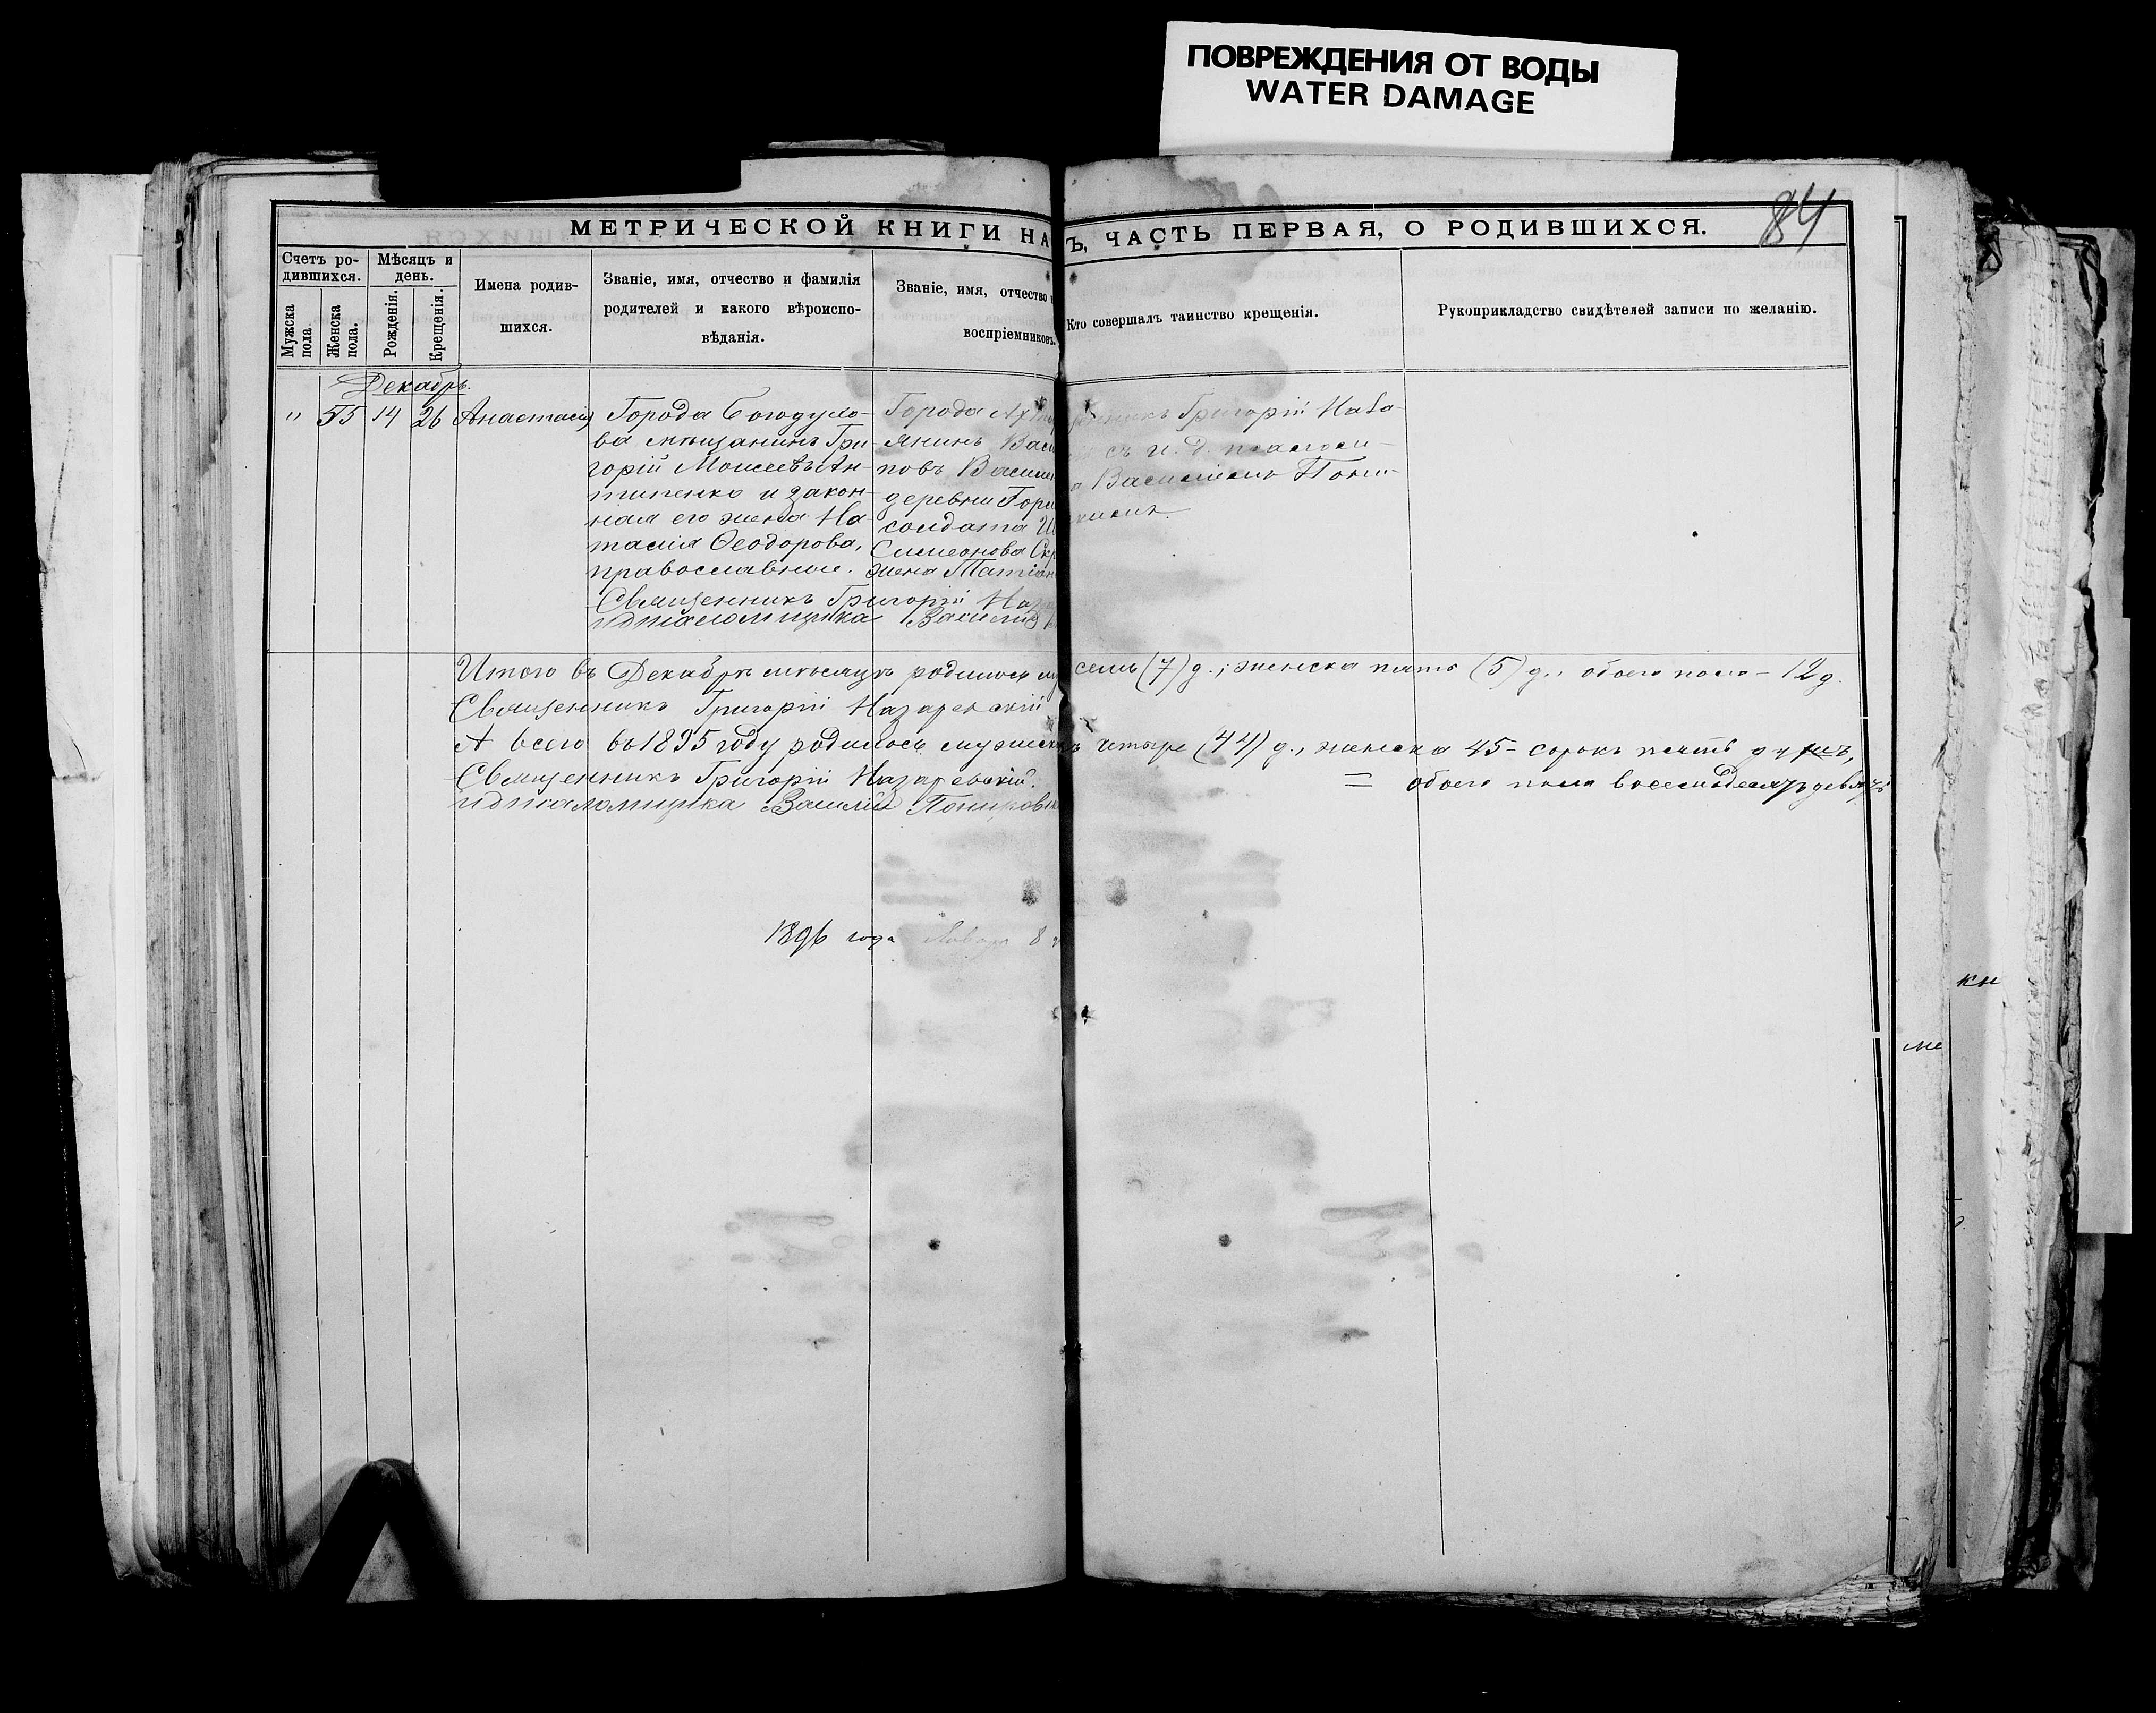 ПОВРЕЖДЕНИЯ ОТ ВОДЫ
WATER DAMAGE
84
МЕТРИЧЕСКОЙ КНИГИ НА Ъ, ЧАСТЬ ПЕРВАЯ, О РОДИВШИХСЯ.
Счетъ ро-
дившихся.
Мужска
пола.
Женска
пола.
Мѣсяцъ и
день.
Рожденія.
Крещенія.
Имена родив-
шихся.
Званіе, имя, отчество и фамилія
родителей и какого вѣроиспо-
вѣданія.
Званіе, имя, отчество
воспріемниковъ.
Кто совершалъ таинство крещенія.
Рукоприкладство свидѣтелей записи по желанію.
Декабрь.
" 55 14 26 Анастасія
Города Богодухо-
ва мѣщанинъ Гри-
горій Моисеевъ Ан-
типенко и закон-
ная его жена На-
талія Ѳеодорова,
православные.
Города
янинъ
повъ
деревни
солдата
Симеонова
жена
Григорій
съ и. д. псаломщи-
Василіемъ
Священникъ Григорій
И д псаломщика Василій
Итого въ Декабрѣ мѣсяцѣ родилось семь (7) д.; женска пять (5) д., обоего пола - 12 д.
Священникъ Григорій Назаревскій
А всего въ 1895 году родилось мужска четыре (44) д., женска 45 - сорокъ пять душъ,
= обоего пола восемьдесятъ девять
Священникъ Григорій Назаревскій.
И д псаломщика Василій
1896 года 8
кн
ме